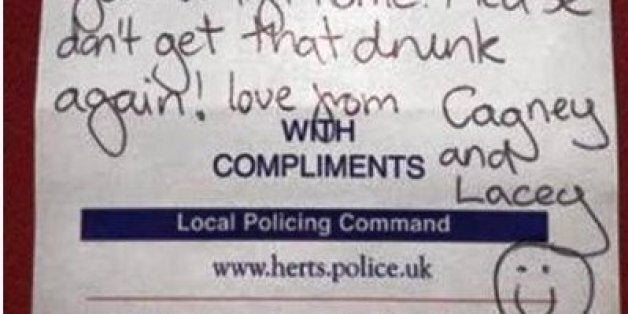 don't get that drunk
again! love from Cagney
WITH
COMPLIMENTS and
Lacey
Local Policing Command
www.herts.police.uk